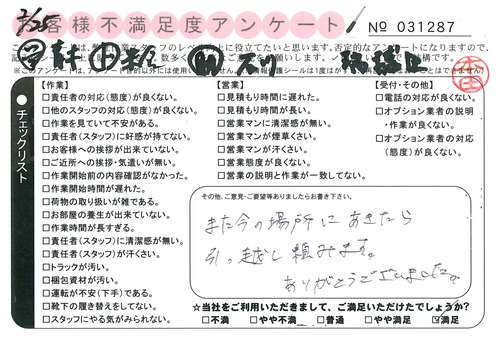 7/28
お客様不満足度アンケート
№ 031287
チェックリスト
【作業】
□責任者の対応(態度)が良くない。
□他のスタッフの対応(態度)が良くない。
□作業を見ていて不安がある。
□責任者(スタッフ)に好感が持てない。
□お客様への挨拶が出来ていない。
□ご近所への挨拶・気遣いが無い。
□作業開始前の内容確認がなかった。
□作業開始時間が遅れた。
□荷物の取り扱いが雑である。
□お部屋の養生が出来ていない。
□作業時間が長すぎる。
□責任者(スタッフ)に清潔感が無い。
□責任者(スタッフ)が汗くさい。
□トラックが汚い。
□梱包資材が汚い。
□運転が不安(下手)である。
□靴下の履き替えをしてない。
□スタッフにやる気がみられない。
【営業】
□見積もり時間に遅れた。
□見積もり時間が長い。
□営業マンに清潔感が無い。
□営業マンが煙草くさい。
□営業マンが汗くさい。
□営業態度が良くない。
□営業の説明と作業が一致してない。
【受付・その他】
□電話の対応が良くない。
□オプション業者の説明
・作業が良くない。
□オプション業者の対応
(態度)が良くない。
その他、ご意見・ご要望等ありましたらお書き下さい。
また今の場所にあきたら
引っ越し頼みます。
ありがとうございました。
☆当社をご利用いただきまして、ご満足いただけたでしょうか?
□不満 □やや不満 □普通 □やや満足 ☑満足